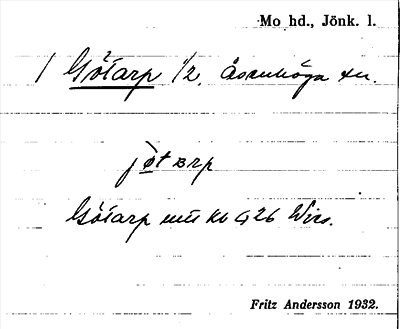 Mo hd., Jönk. l.
1 Götarp 1/2. Åsenhöga sn.
jøtarp
Götarp mtl kb 426 Wirs.
Fritz Andersson 1932.